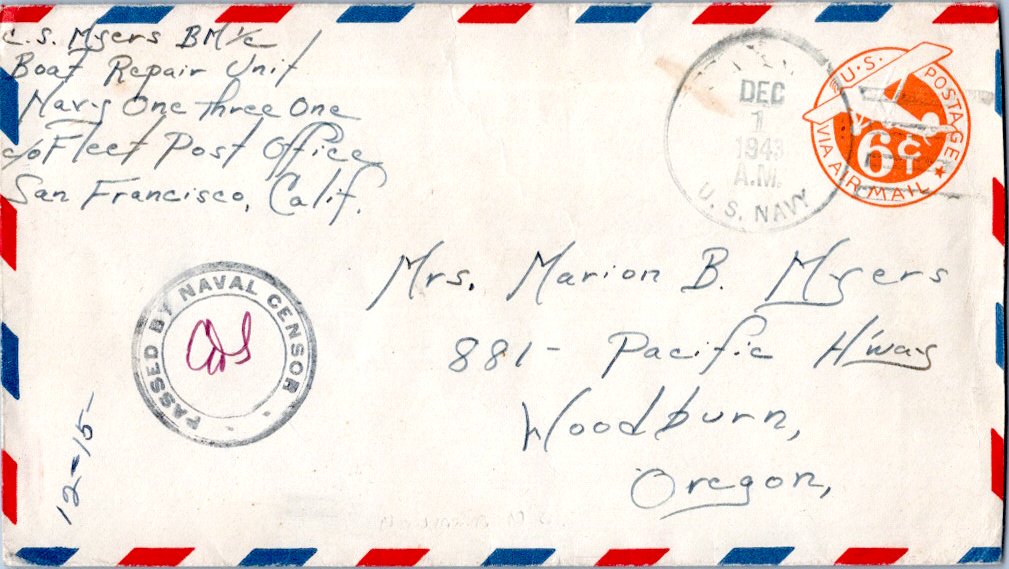 C.S. Myers BM1/c
Boat Repair Unit
Navy One three One
c/o Fleet Post Office
San Francisco, Calif.
DEC
1
1943
A.M.
U.S. NAVY
U.S. POSTAGE
6¢
VIA AIR MAIL
Mrs. Marion B. Myers
881- Pacific H'way
Woodburn,
Oregon,
PASSED BY NAVAL CENSOR
12-15-